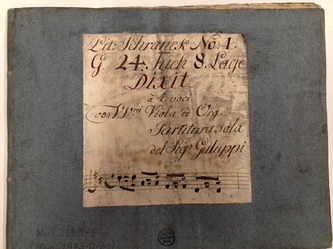 Lit: Schranck No: 1.
G 24. Fach 8. Lage
Dixit
à 4. voci
con VVni Viola ed Org.
Partitura sola
del Sigr Galuppi